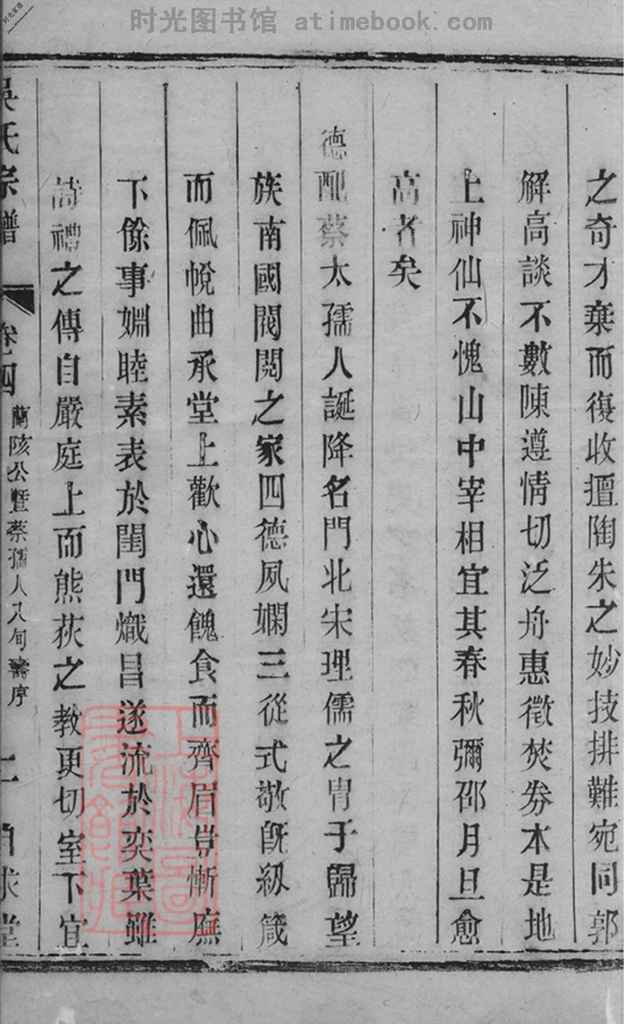 时光图书馆 atimebook.com
之奇才棄而復收擅陶朱之妙技排難宛同郭
解高談不數陳遵情切泛舟惠徵焚券本是地
上神仙不愧山中宰相宜其春秋彌邵月旦愈
高者矣
德配蔡太孺人誕降名門北宋理儒之冑于歸望
族南國閥閱之家四德夙嫻三從式敬旣級箴
而佩帨曲承堂上歡心還餽食而齊眉豈慚廡
下餘事婣睦素表於閨門熾昌遂流於奕葉雖
詩禮之傳自嚴庭上而熊荻之教更切室下宜
吳氏宗譜 卷之四 蘭陔公暨蔡孺人八旬壽序 二 自求堂